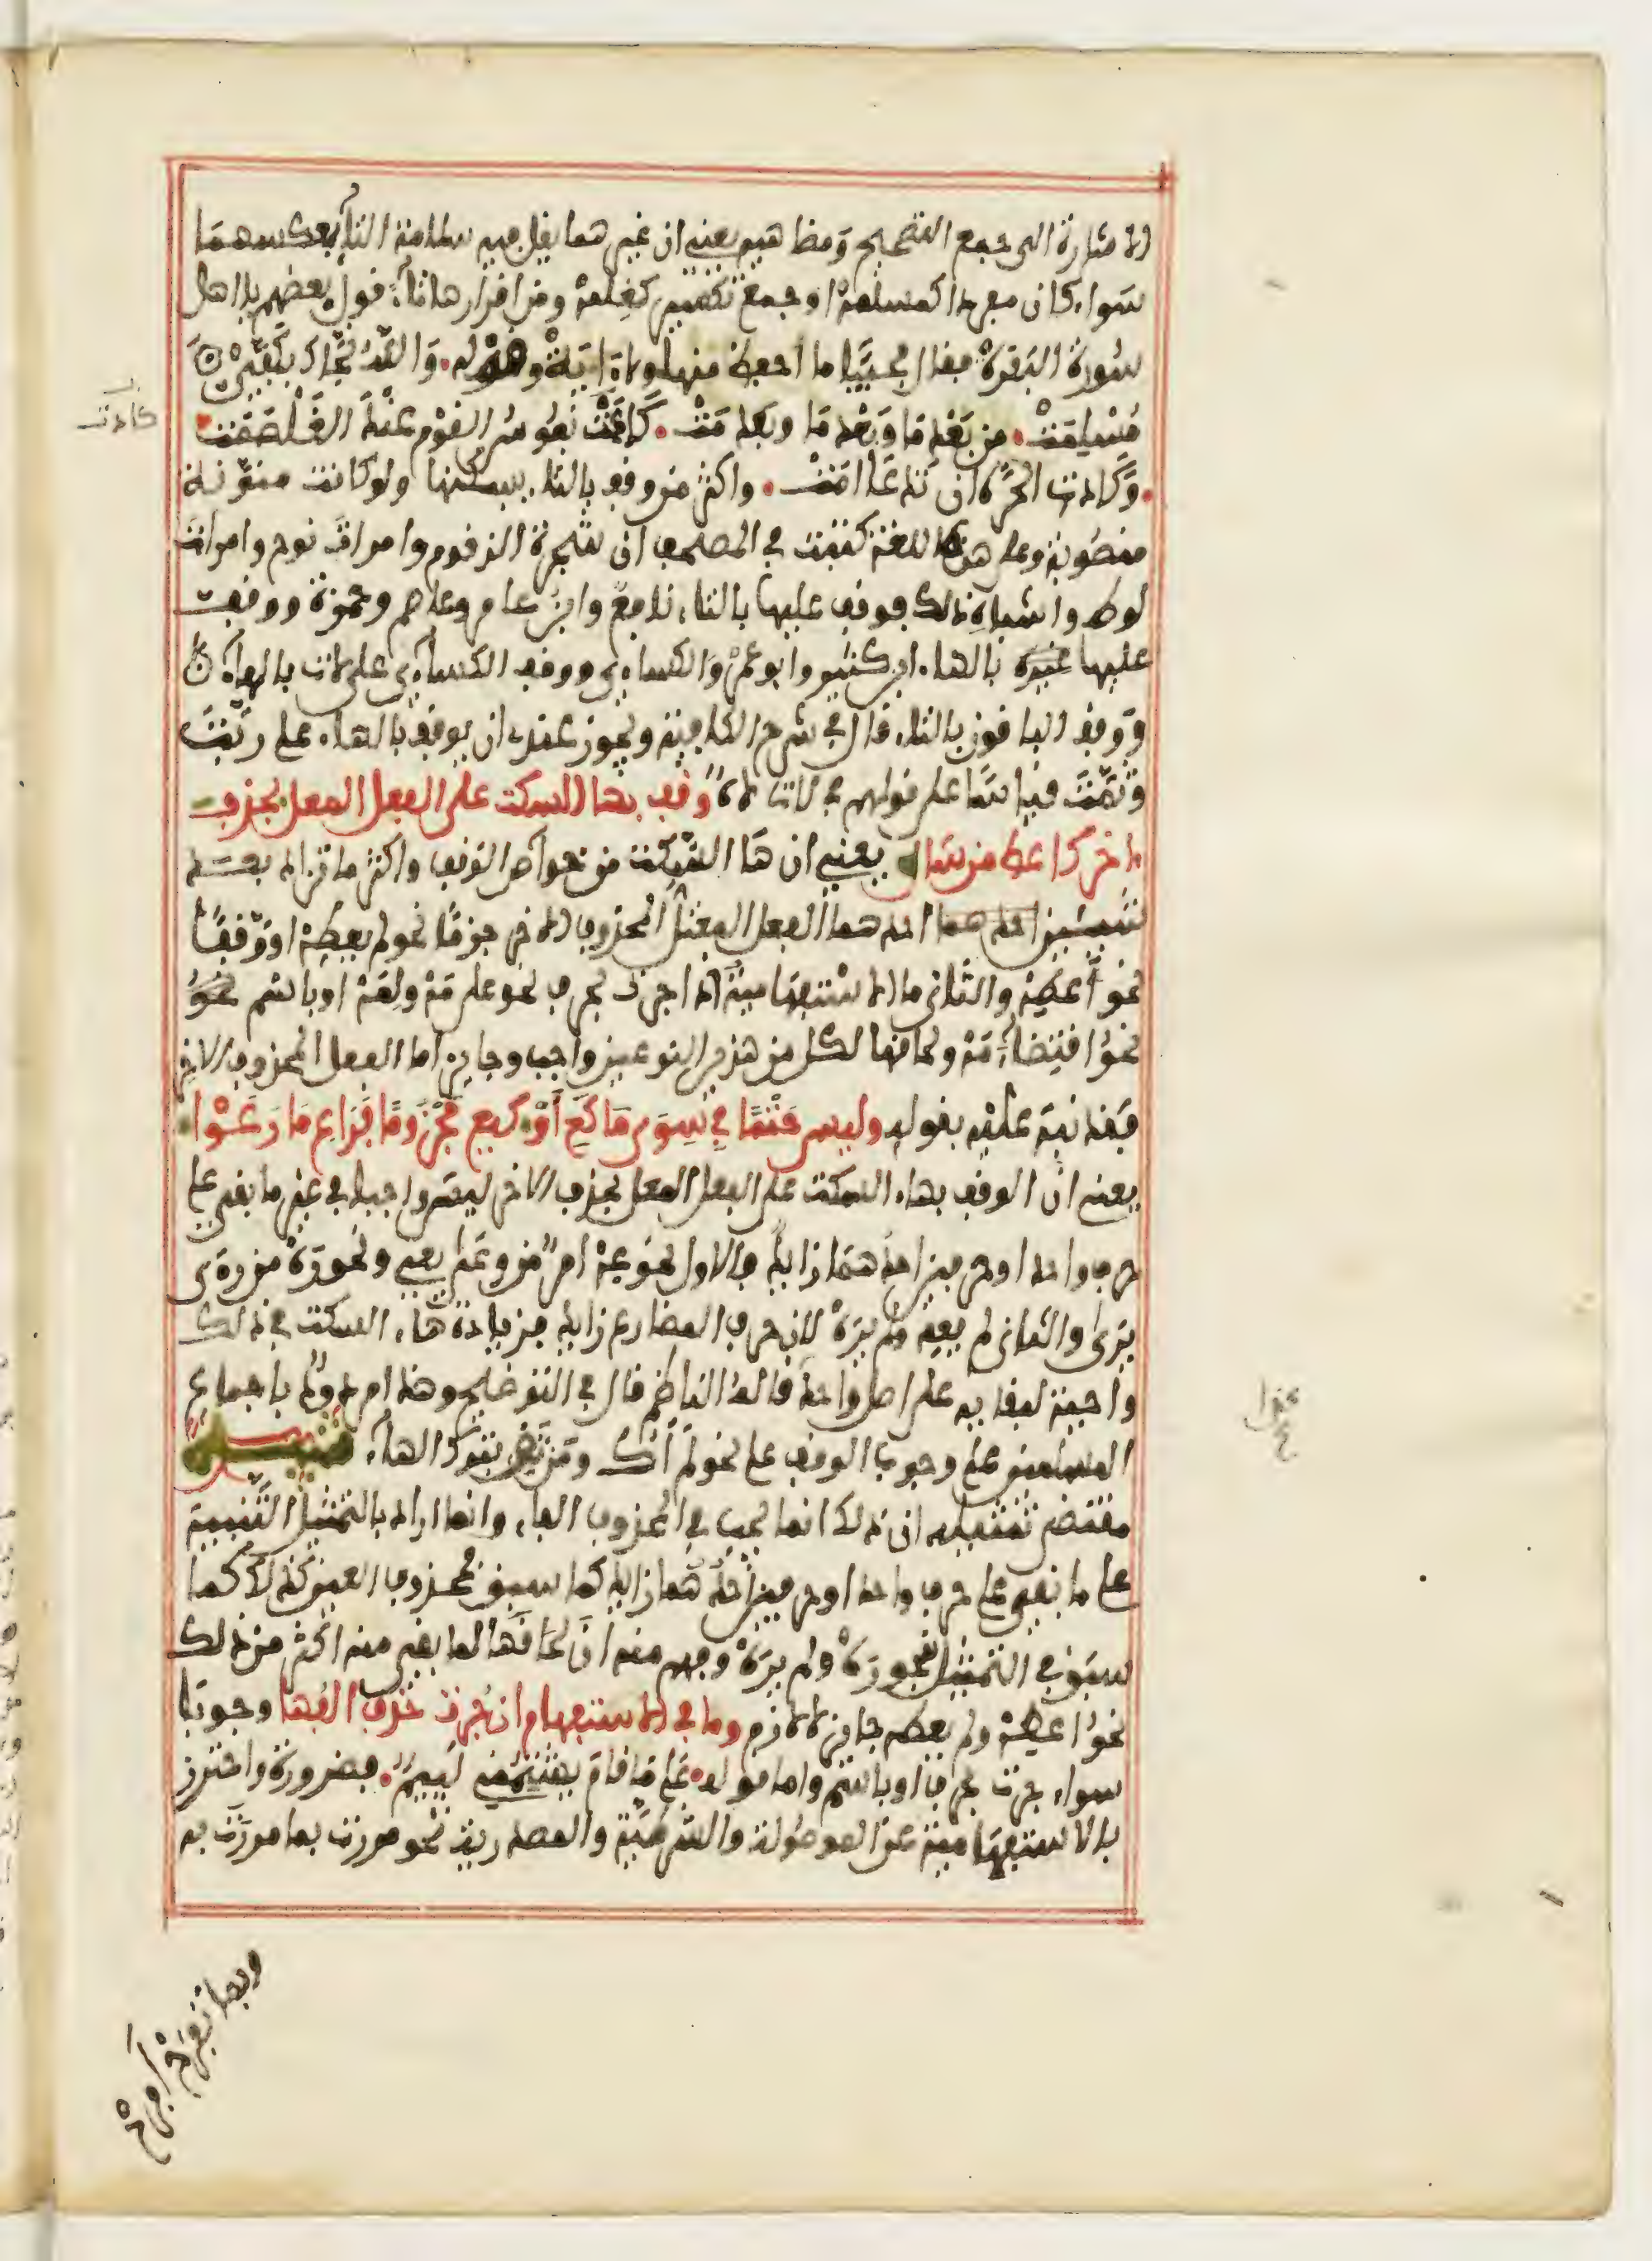 الاشارة الى جمع التصحيح ومضاهيه يعني ان غير هما يقل فيه سلامة التاء بعكسهما
سواء كان مفردا كمسلمة او جمع تكسير كغلمة ومن اقرارها تاء قول بعضهم يا اهل
سورة البقرة فقال مجيبا ما احفظ منها ولا ايت وقوله والله نجاك بكفي
مسلمت من بعد ما وبعد ما وبعد مت كانت نفوس القوم عند الغلصمت
وكادت الحرة ان تدعا امت واكثر من وقف بالتاء يسكنها ولو كانت منونة
منصوبة وعلى هذه اللغة كتبت في المصحف ان شجرة الزقوم وامرات نوح وامرات
لوط واشباه ذلك فوقف عليها بالتاء نافع وابن عامر وعاصم وحمزة ووقف
عليها غيره بالهاء ابن كثير وابو عمر والكساءي ووقف الكساءي على لات بالهاء
ووقف الباقون بالتاء قال في شرح الكافية ويجوز عندي ان يوقف بالهاء على ربت
وثمت قياسا على قولهم في لات لاه وقف بها السكت على الفعل المعل بحذف
اخر كاعط من سال يعني ان ها السكت من خواص الوقف واكثر ما تزاد بعد
شيئين احدهما احدهما الفعل المعتل المحذوف الاخر جزما نحو لم يعطه او وقفا
نحو اعطه والثاني ما الاستفهامية اذا جرت بحرف نحو على مه ولمه او باسم نحو
نحو اقتضاء مه ولحاقها لكل من هذين النوعين واجب وجايز اما الفعل المحذوف الاخر
فقد نبه عليه بقوله وليس حتما في سوى ما كع او كيع مجزوما فراع ما رعوا
يعني ان الوقف بهاء السكت على الفعل المعل بحذف الاخر ليس واجبا في غير ما بقي على
حرف واحد او حرفين احدهما زايد فالاول نحو عه امر من وعى يعي ونحو ره من رءى
يرى والثاني لم يعه ولم يره لان حرف المضارع زايد فزيادة هاء السكت في ذلك
واجبة لبقايه على اصل واحد قاله الناظم قال في التوضيح وهذا مردود باجماع
المسلمين على وجوب الوقف على نحو لم اك ومن تق بترك الهاء تنبيه
مقتضى تمثيله ان ذلك انما يجب في المحذوف الفاء وانما اراد بالتمثيل التنبيه
على ما بقي على حرف واحد او حرفين احدهما زايد كما سبق فمحذوف العين كذلك كما
سبق في التمثيل بنحو ره ولم يره وفهم منه ان لحاقها لما بقي منه اكثر من ذلك
نحو اعطه ولم يعطه جايز لا لازم وما في الاستفهام ان جرت حذف الفها وجوبا
سواء جرت بحرف او باسم واما قوله على ما قام يشتمني لييم فضرورة واحترز
بالاستفهامية عن الموصولة والشرطية والمصدرية نحو مررت بما مررت به
كادت
وبما تفرح افرح